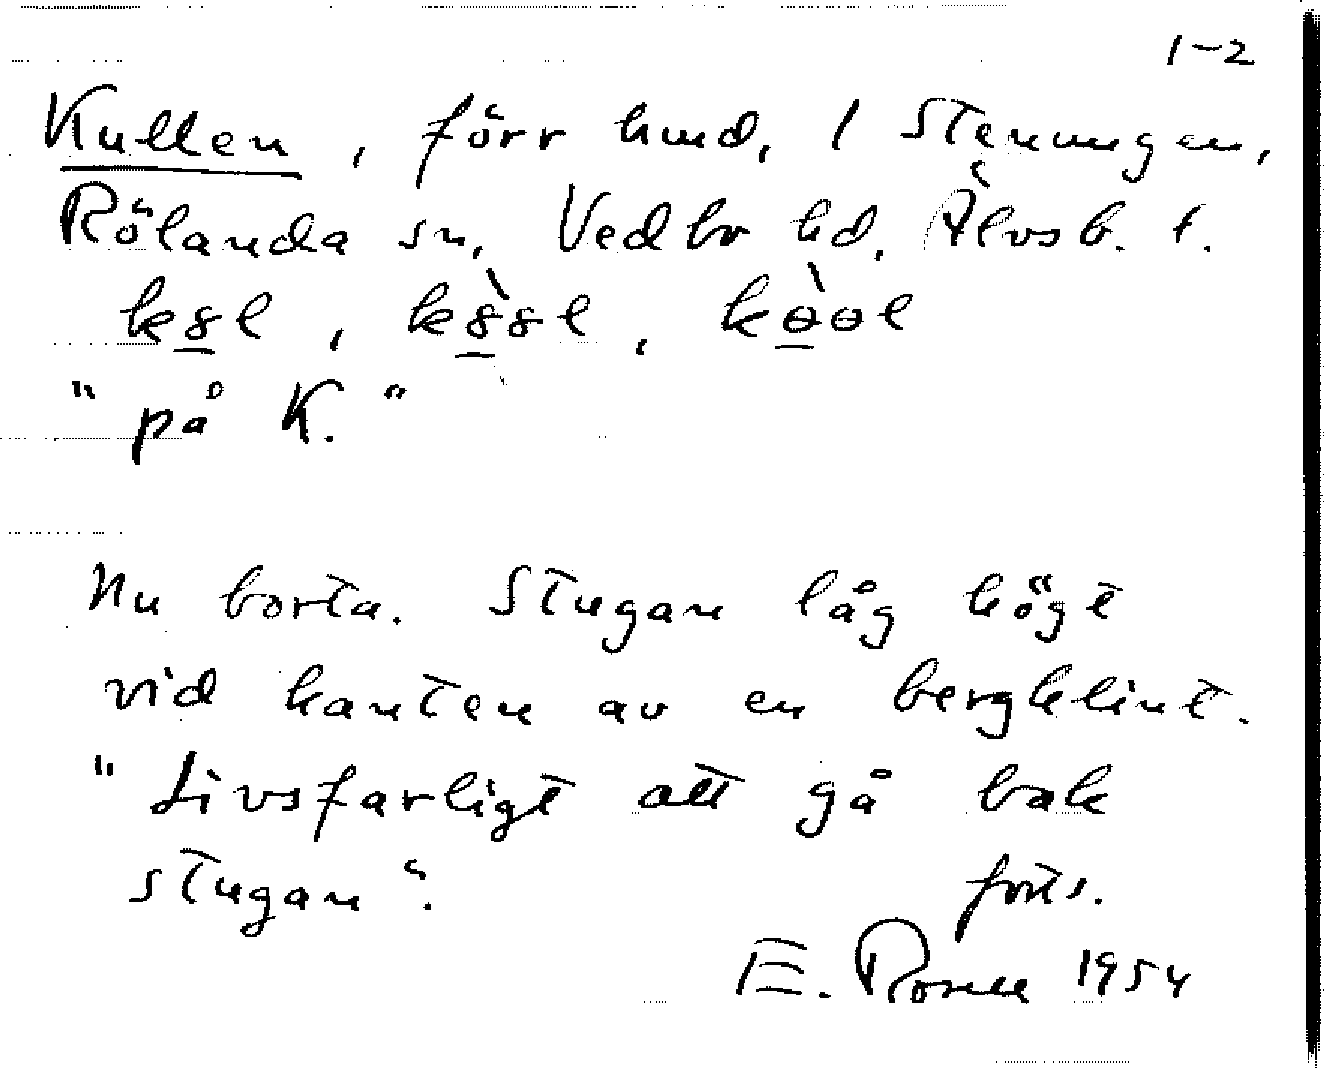 1-2
Kullen, förr hmd, 1 Stenungen,
Rölanda sn, Vedbo hd, Älvsb. l.
"på K."
Nu borta. Stugan låg högt
vid kanten av en bergklint.
"Livsfarligt att gå bak
stugan".
forts.
E. Rosell 1954